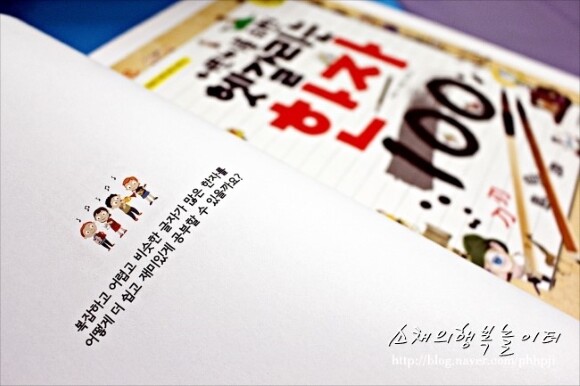 헷갈리는
한자
100
복잡하고 어렵고 비슷한 글자가 많은 한자를
어떻게 더 쉽고 재미있게 공부할 수 있을까요?
소채의행복놀이터